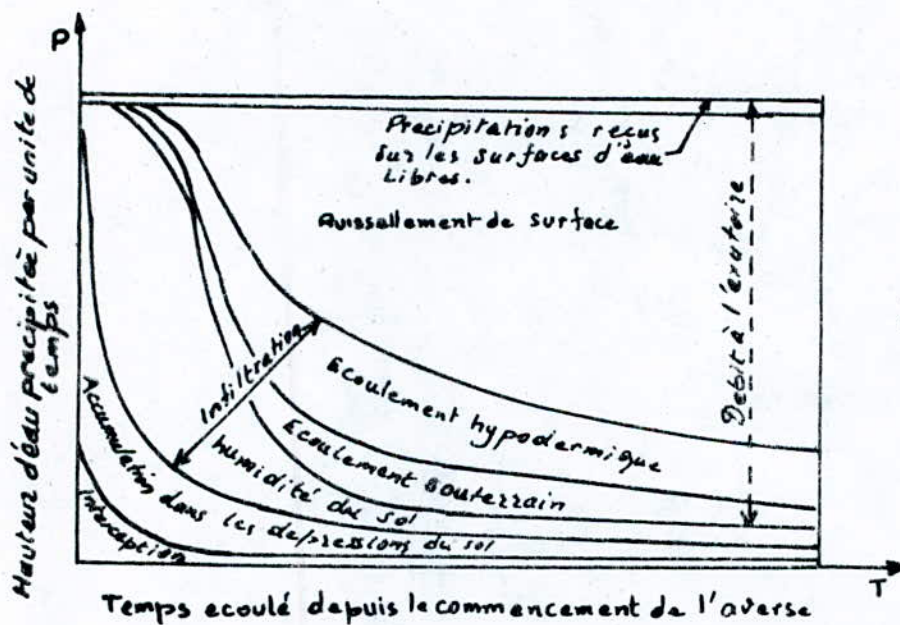 P
Hauteur d'éau précipitèè par unite de
temps
Précipitations reçus
sur les surfaces d'éau
Libres.
Ruissallement de surface
Debit à l'exutoire
Infiltration
Ecoulement hypodermique
Ecoulement souterrain
humidité du sol
Accumulation dans les dépressions du sol
Interception
T
Temps ecoulé depuis le commencement de l'averse